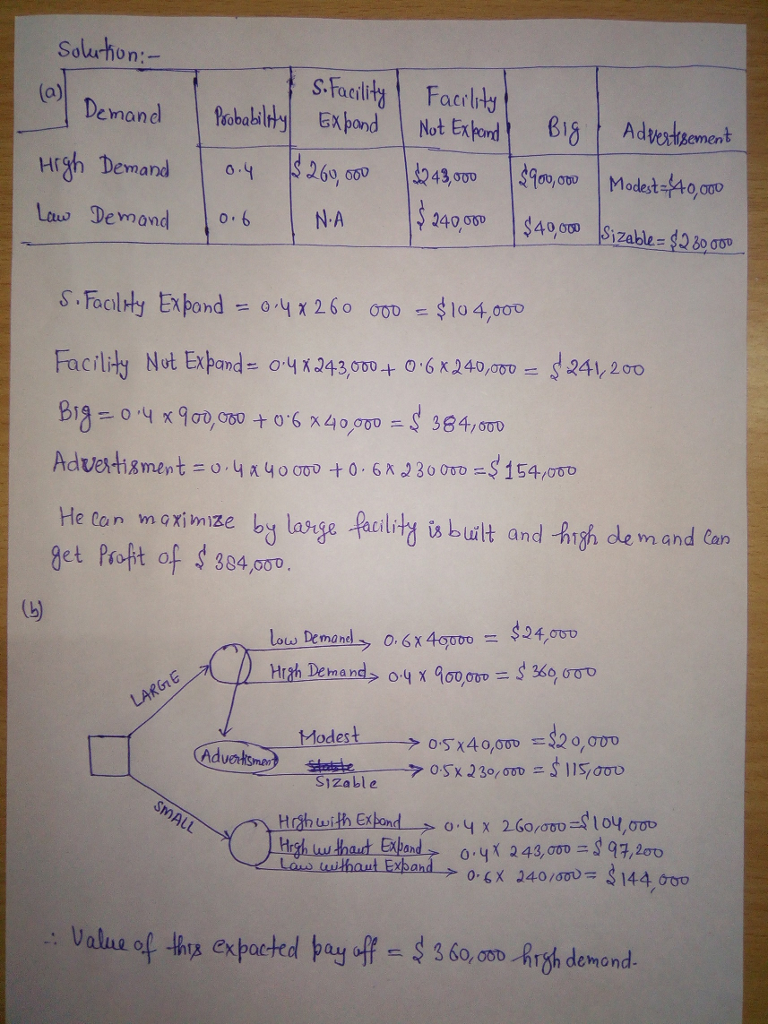 Solution:-
(a) Demand | Probability | S.Facility Expand | Facility Not Expand | Big | Advertisement
High Demand | 0.4 | $260,000 | $243,000 | $900,000 | Modest=$40,000
Law Demand | 0.6 | N.A | $240,000 | $40,000 | Sizable=$230,000
S.Facility Expand = 0.4 x 260 000 = $104,000
Facility Not Expand = 0.4 x 243,000 + 0.6 x 240,000 = $241,200
Big = 0.4 x 900,000 + 0.6 x 40,000 = $ 384,000
Advertisment = 0.4 x 40000 + 0.6 x 230000 = $154,000
He can maximize by large facility is built and high demand can
get Profit of $ 384,000.
(b)
Low Demand → 0.6 x 40,000 = $24,000
LARGE High Demand → 0.4 x 900,000 = $360,000
Modest → 0.5 x 40,000 = $20,000
Advertisment
Sizable → 0.5 x 230,000 = $115,000
SMALL High with Expand → 0.4 x 260,000 = $104,000
High without Expand → 0.4 x 243,000 = $97,200
Law without Expand → 0.6 x 240,000 = $144,000
∴ Value of this expacted pay off = $ 360,000 high demand.